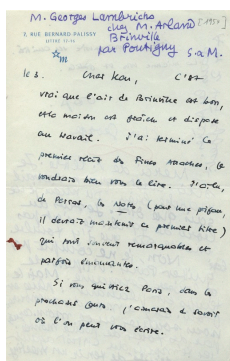 M. Georges Lambrichs [1957]
chez M. Arland
7, RUE BERNARD-PALISSY
Brinville
par Pontigny S. & M.
le 3. Cher Jean, C'est
vrai que l'air de Brinville est bon,
et la maison est fraîche et dispose
au travail. J'ai terminé le
premier récit des Fines attaches, je
voudrais bien vous le lire. J'attends,
de Paris, les Notes (pour une préface,
il devrait maintenir ce premier titre)
qui sont souvent remarquables et
parfois émouvantes.
Si vous quittiez Paris, dans les
prochains jours, j'aimerais savoir
où l'on peut vous écrire.